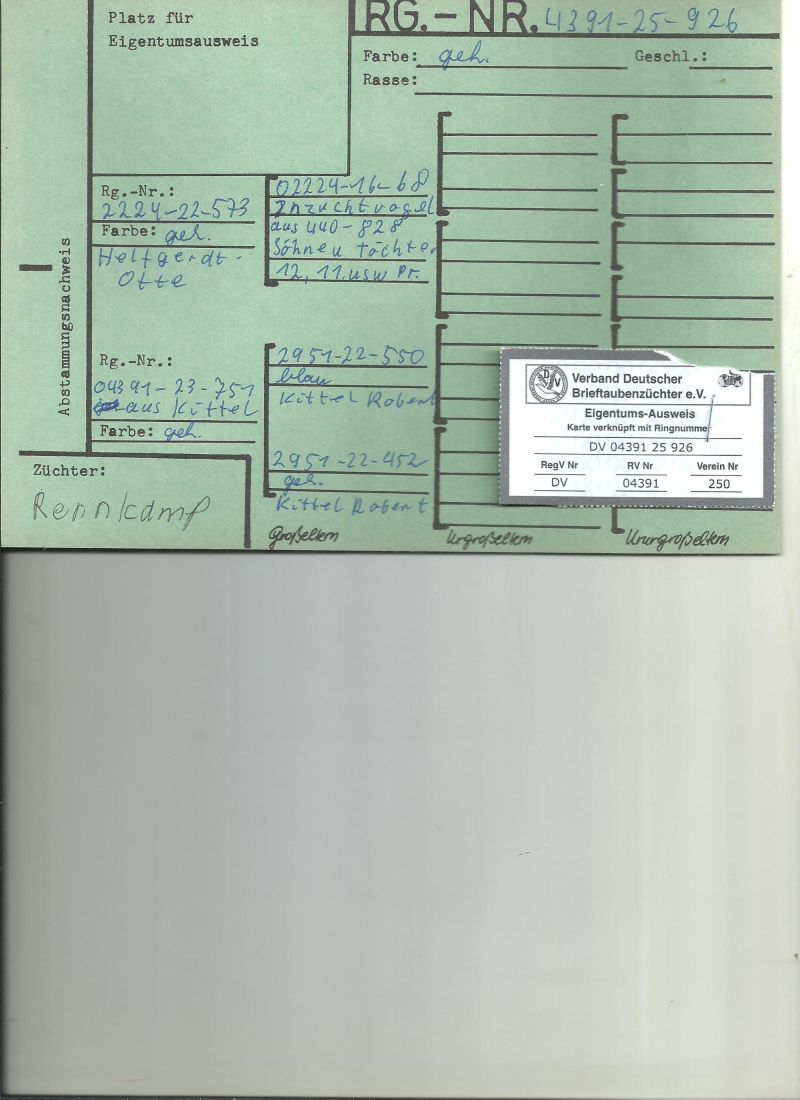 Platz für
Eigentumsausweis
RG.-NR. 4391-25-926
Farbe: geh. Geschl.:
Rasse:
Abstammungsnachweis
Rg.-Nr.:
2224-22-573
Farbe: geh.
Helfgerdt-
Otte
02224-16-68
Inzuchtvogel
aus 440-828
Söhne u Töchter
12, 11. usw Pr.
Rg.-Nr.:
04391-23-751
aus Kittel
Farbe: geh.
2951-22-550
blau
Kittel Robert
2951-22-452
geh.
Kittel Robert
Züchter:
Rennkamp
Großeltern
Urgroßeltern
Ururgroßeltern
Verband Deutscher
Brieftaubenzüchter e.V.
Eigentums-Ausweis
Karte verknüpft mit Ringnummer
DV 04391 25 926
RegV Nr RV Nr Verein Nr
DV 04391 250